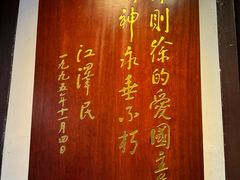 則徐的愛國主義
神永垂不朽
江澤民
一九九五年十一月四日